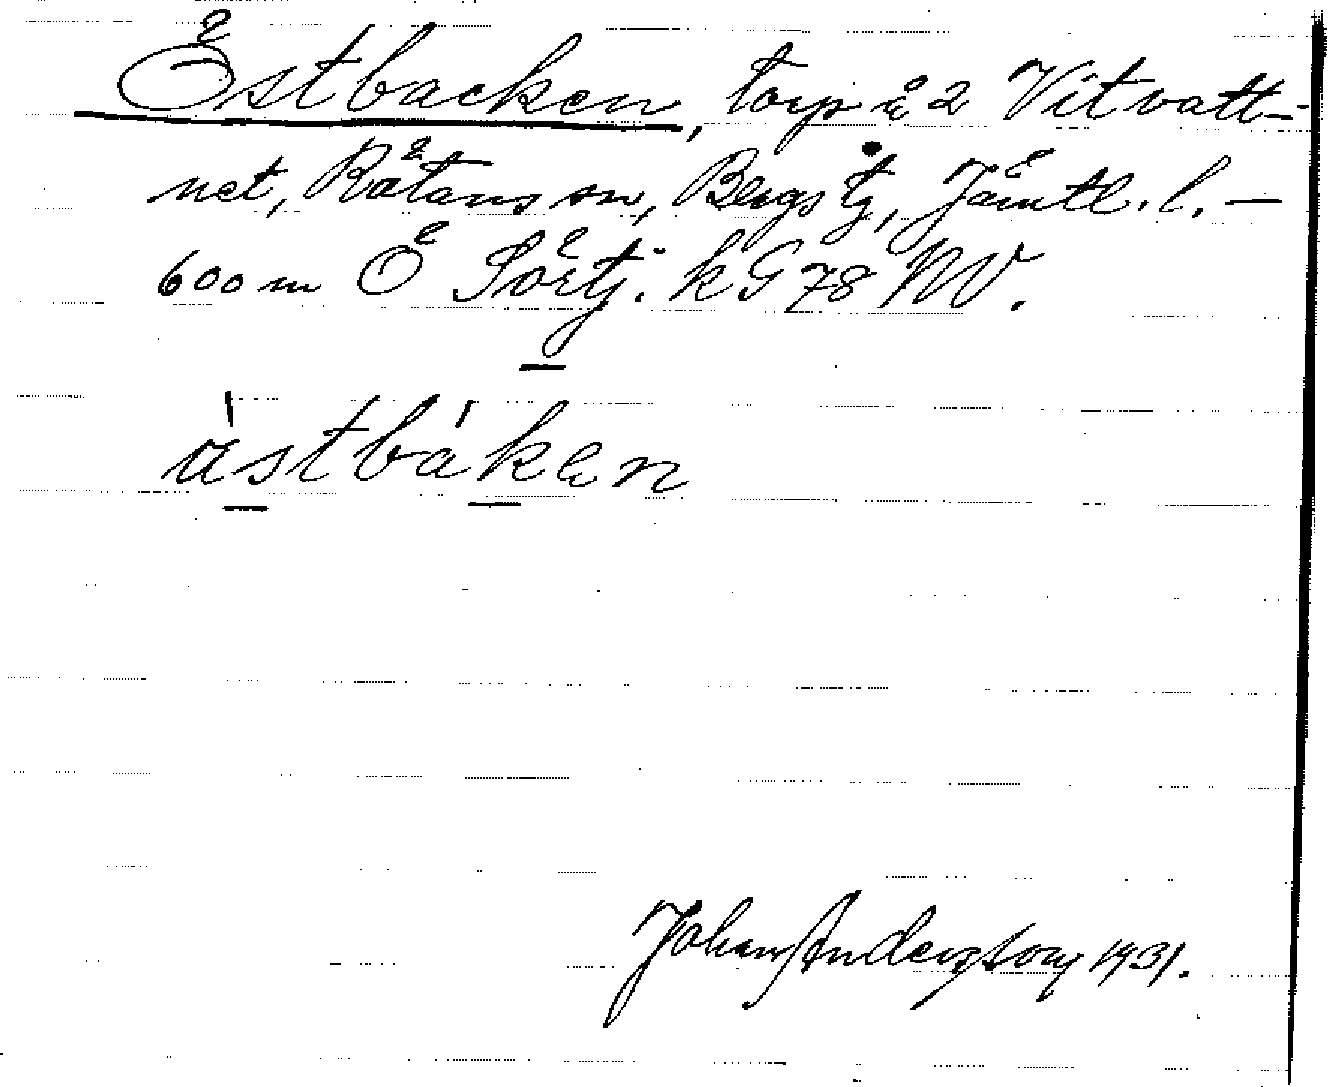 Östbacken, torp å 2 Vitvatt-
net, Rätans sn, Bergs tg, Jämtl. l. –
600 m Ö Börtj. k G 78 NV.
àstbáken
Johan Anderzson 1931.